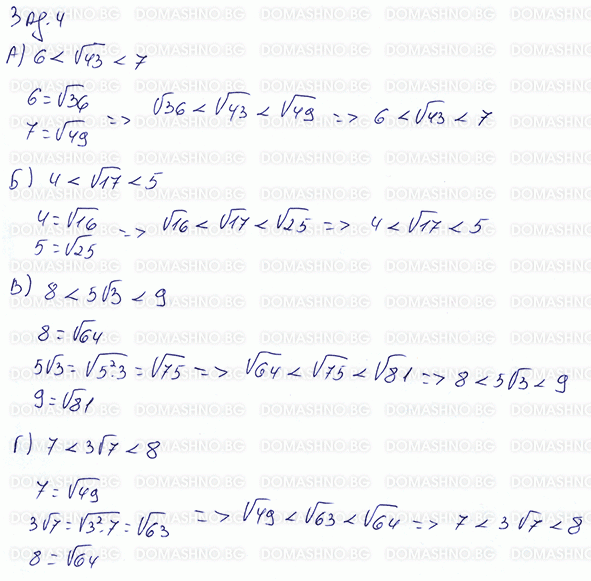 Зад. 4
А) 6 < √43 < 7
6 = √36
7 = √49
=> √36 < √43 < √49 => 6 < √43 < 7
Б) 4 < √17 < 5
4 = √16
5 = √25
=> √16 < √17 < √25 => 4 < √17 < 5
В) 8 < 5√3 < 9
8 = √64
5√3 = √5².3 = √75 => √64 < √75 < √81 => 8 < 5√3 < 9
9 = √81
Г) 7 < 3√7 < 8
7 = √49
3√7 = √3².7 = √63 => √49 < √63 < √64 => 7 < 3√7 < 8
8 = √64
DOMASHNO.BG